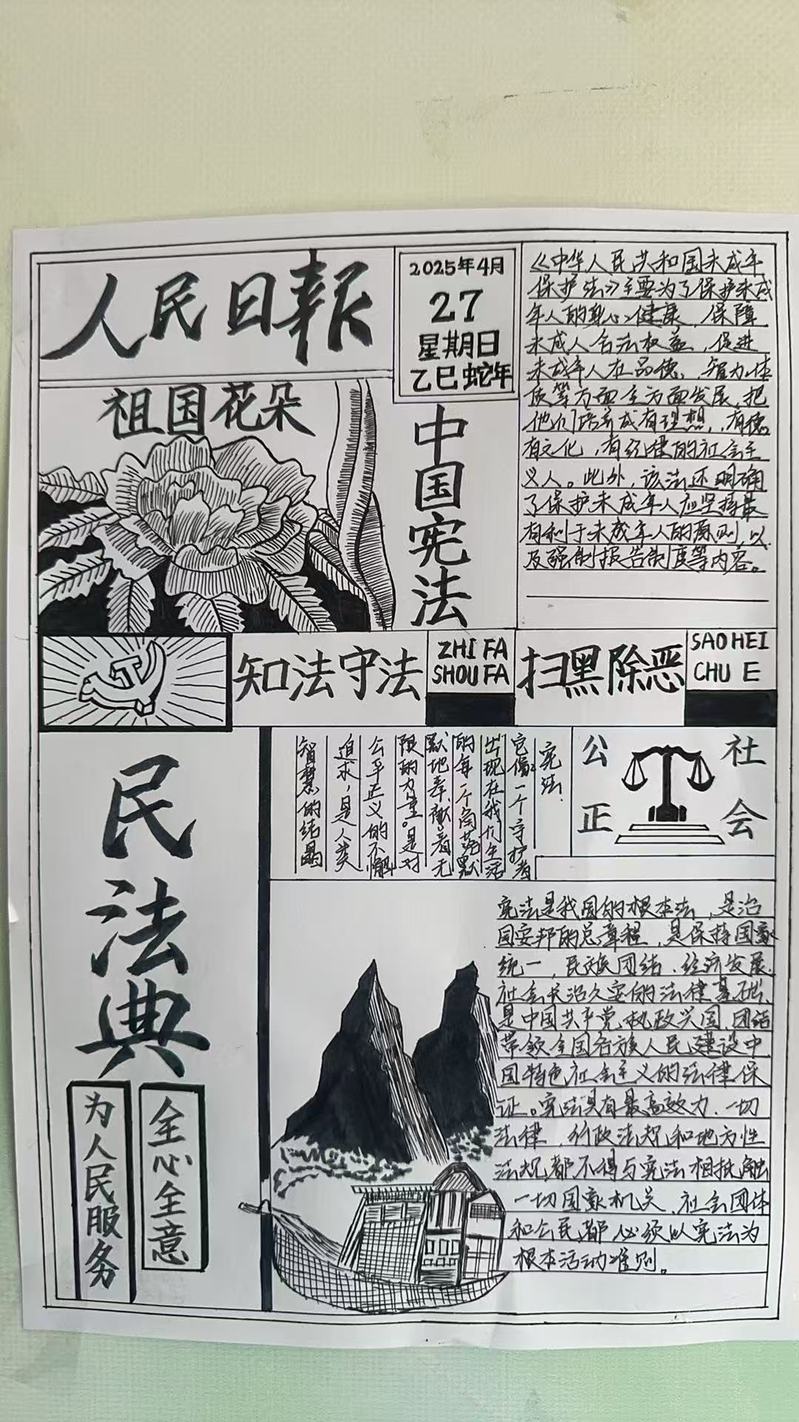 人民日報
2025年4月
27
星期日
乙巳蛇年
《中华人民共和国未成年
保护法》主要为了保护未成
年人的身心健康，保障
未成人合法权益，促进
未成年人在品德、智力、体
质等方面全方面发展，把
他们培养成有理想，有德
有文化，有纪律的社会主
义人。此外，该法还明确
了保护未成年人应坚持最
有利于未成年人的原则，以
及强制报告制度等内容。
祖国花朵
中国宪法
知法守法
ZHI FA
SHOU FA
扫黑除恶
SAO HEI
CHU E
民法典
全心全意
为人民服务
宪法，
它像一个守护者
出现在我们生活
的每一个角落默
默地奉献着无
限的力量。是对
公平正义的不懈
追求，是人类
智慧的结晶
公正
社会
宪法是我国的根本法，是治
国安邦的总章程，是保持国家
统一，民族团结、经济发展、
社会长治久安的法律基础、
是中国共产党执政兴国、团结
带领全国各族人民建设中
国特色社会主义的法律保
证。宪法具有最高效力、一切
法律、行政法规和地方性
法规都不得与宪法相抵触
一切国家机关、社会团体
和公民都必须以宪法为
根本活动准则。